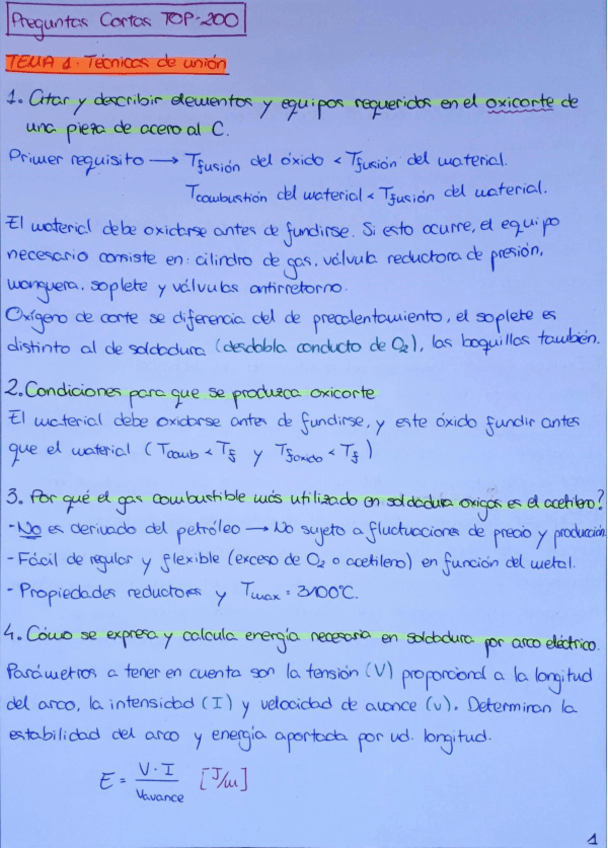 Preguntas Cortas TOP-200
TEMA 1. Técnicas de unión
1. Citar y describir elementos y equipos requeridos en el oxicorte de
una pieza de acero al C.
Primer requisito → Tfusión del óxido < Tfusión del material.
Tcombustión del material < Tfusión del material.
El material debe oxidarse antes de fundirse. Si esto ocurre, el equipo
necesario consiste en: cilindro de gas, válvula reductora de presión,
manguera, soplete y válvulas antirretorno.
Oxígeno de corte se diferencia del de precalentamiento, el soplete es
distinto al de soldadura (desdobla conducto de O₂), las boquillas también.
2. Condiciones para que se produzca oxicorte
El material debe oxidarse antes de fundirse, y este óxido fundir antes
que el material (Tcomb < Tf y Tfoxido < Tf)
3. Por qué el gas combustible más utilizado en soldadura oxigas es el acetileno?
- No es derivado del petróleo → No sujeto a fluctuaciones de precio y producción
- Fácil de regular y flexible (exceso de O₂ o acetileno) en función del metal.
- Propiedades reductores y Tmax = 3100°C.
4. Cómo se expresa y calcula energía necesaria en soldadura por arco eléctrico.
Parámetros a tener en cuenta son la tensión (V) proporcional a la longitud
del arco, la intensidad (I) y velocidad de avance (v). Determinan la
estabilidad del arco y energía aportada por ud. longitud.
E = V · I / Vavance [J/m]
1